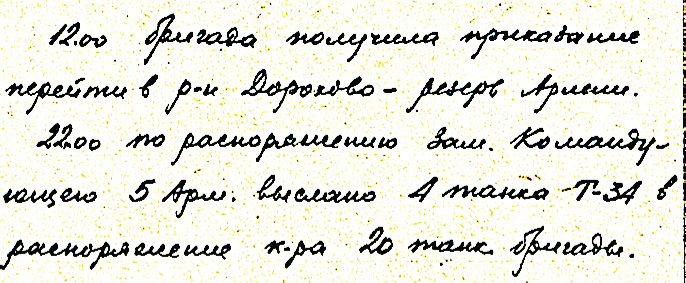 12.00 бригада получила приказание
перейти в р-н Дорохово - резерв Армии.
22.00 по распоряжению Зам. Команду-
ющего 5 Арм. выслано 4 танка Т-34 в
распоряжение к-ра 20 танк. бригады.